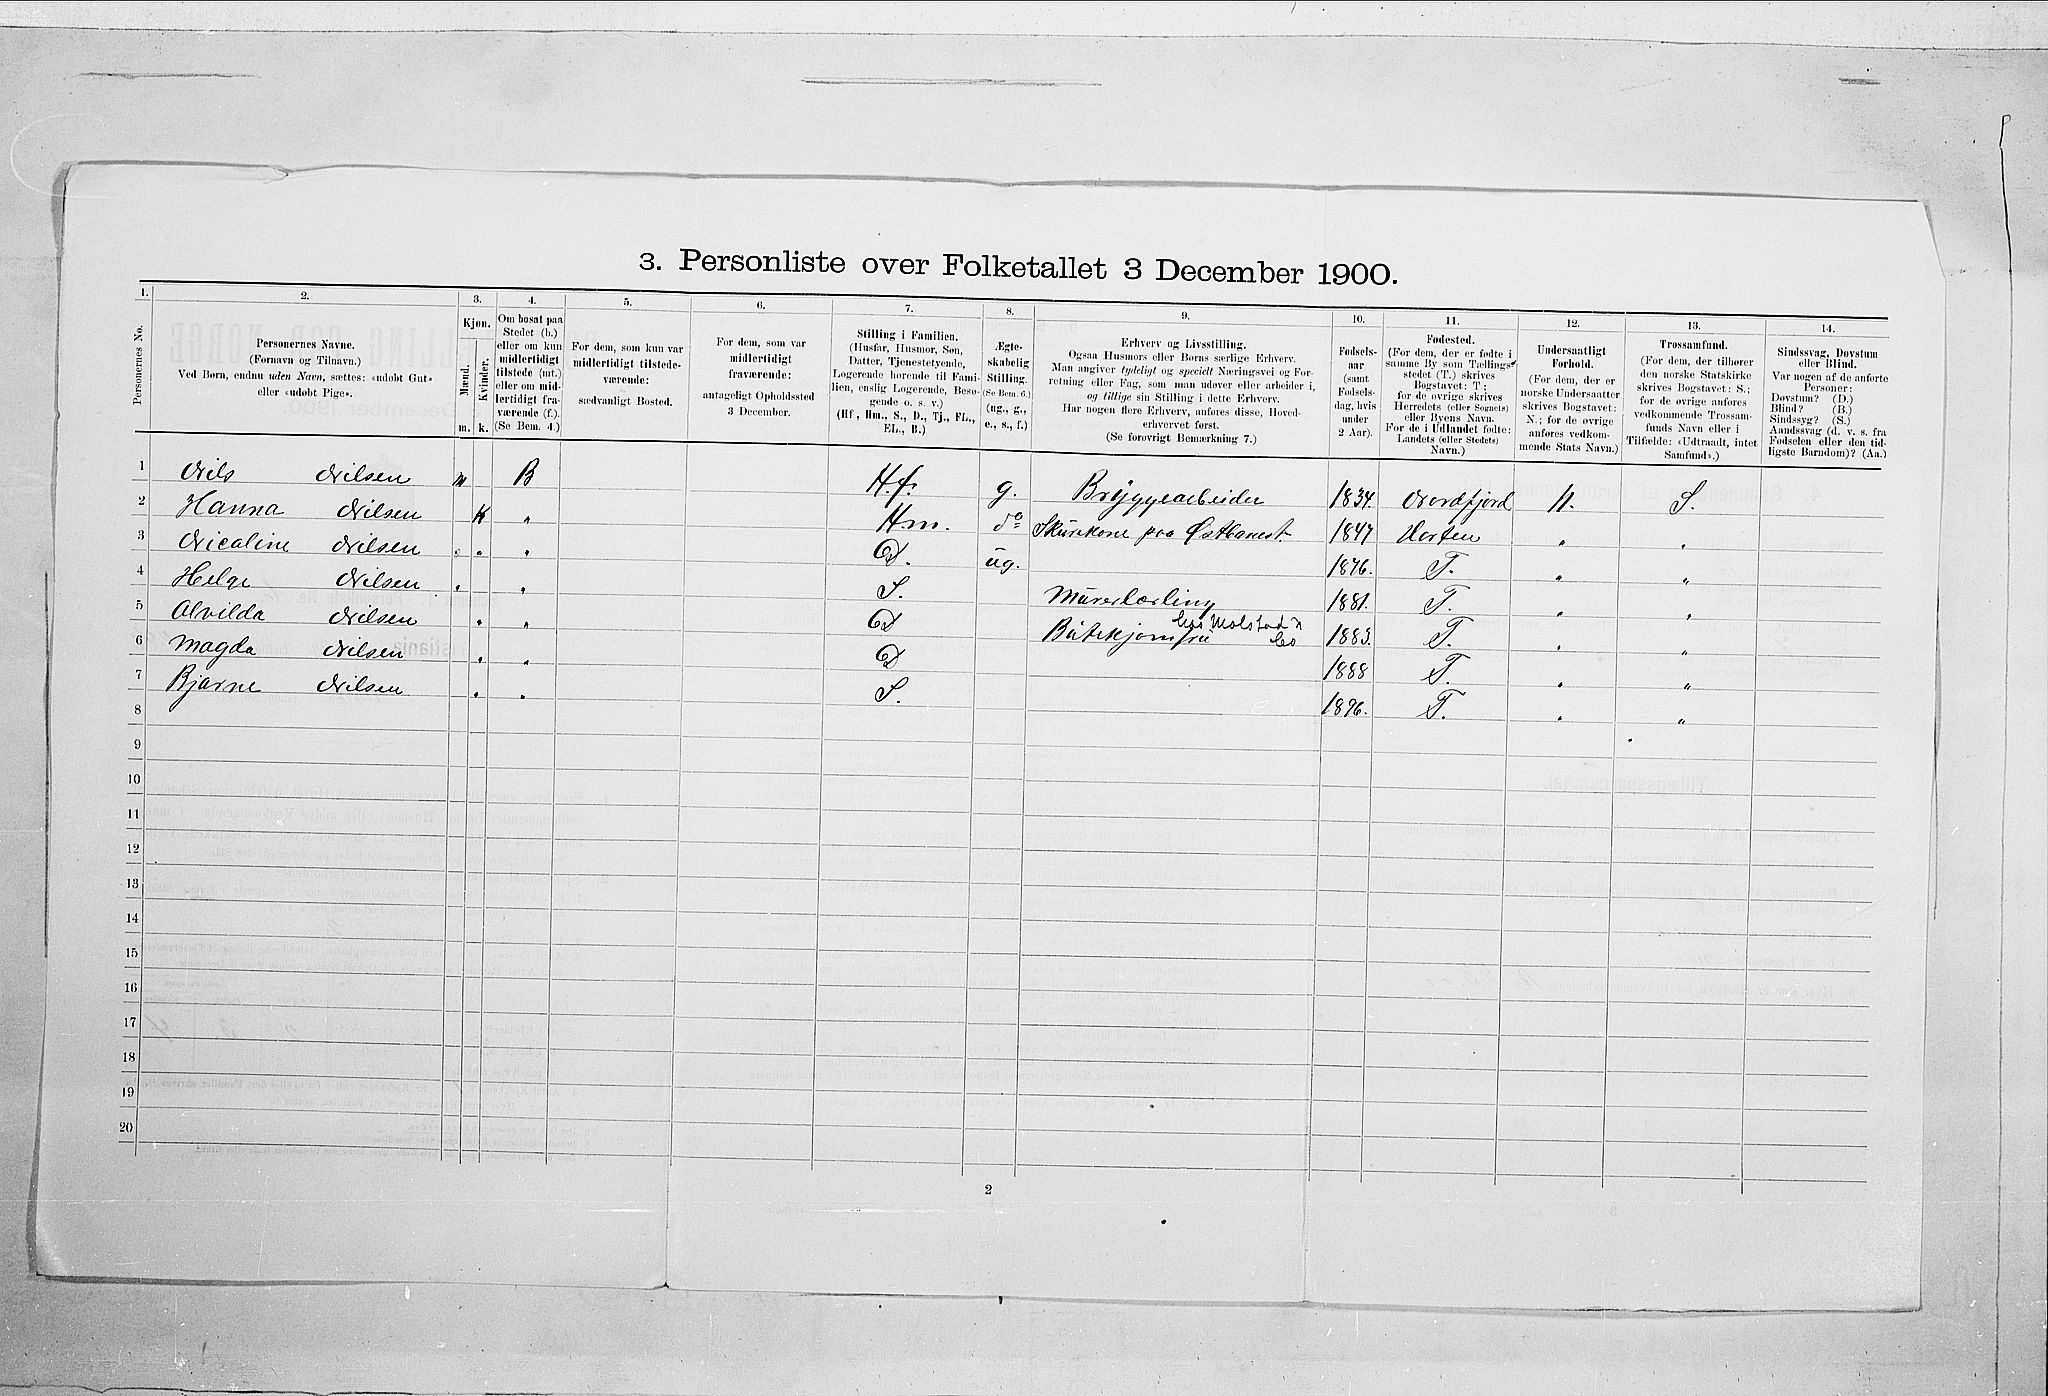 3. Personliste over Folketallet 3 December 1900.
1. 2. 3. 4. 5. 6. 7. 8. 9. 10. 11. 12. 13. 14.
Personernes No.
Personernes Navne.
(Fornavn og Tilnavn.)
Ved Børn, endnu uden Navn, sættes: «udøbt Gut»
eller «udøbt Pige».
Kjøn.
Mænd.
Kvinder.
m. k.
Om bosat paa
Stedet (b.)
eller om kun
midlertidigt
tilstede (mt.)
eller om mid-
lertidigt fra-
værende (f.).
(Se Bem. 4.)
For dem, som kun var
midlertidigt tilstede-
værende:
sædvanligt Bosted.
For dem, som var
midlertidigt
fraværende:
antageligt Opholdssted
3 December.
Stilling i Familien.
(Husfar, Husmor, Søn,
Datter, Tjenestetyende,
Logerende hørende til Fami-
lien, enslig Logerende, Besø-
gende o. s. v.)
(Hf, Hm., S., D., Tj., FL.,
EL., B.)
Ægte-
skabelig
Stilling.
(Se Bem. 6.)
(ug., g.,
e., s., f.)
Erhverv og Livsstilling.
Ogsaa Husmors eller Børns særlige Erhverv.
Man angiver tydeligt og specielt Næringsvei og For-
retning eller Fag, som man udøver eller arbeider i,
og tillige sin Stilling i dette Erhverv.
Har nogen flere Erhverv, anføres disse, Hoved-
erhvervet først.
(Se forøvrigt Bemærkning 7.)
Fødsels-
aar
(samt
Fødsels-
dag, hvis
under
2 Aar).
Fødested.
(For dem, der er fødte i
samme By som Tællings-
stedet (T.) skrives
Bogstavet: T;
for de øvrige skrives
Herredets (eller Sognets)
eller Byens Navn.
For de i Udlandet fødte:
Landets (eller Stedets)
Navn.)
Undersaatligt
Forhold.
(For dem, der er
norske Undersaatter
skrives Bogstavet:
N.; for de øvrige
anføres vedkom-
mende Stats Navn.)
Trossamfund.
(For dem, der tilhører
den norske Statskirke
skrives Bogstavet: S.;
for de øvrige anføres
vedkommende Trossam-
funds Navn eller i
Tilfælde: «Udtraadt, intet
Samfund».)
Sindssvag, Døvstum
eller Blind.
Var nogen af de anførte
Personer:
Døvstum? (D.)
Blind? (B.)
Sindssyg? (S.)
Aandssvag (d. v. s. fra
Fødselen eller den tid-
ligste Barndom)? (Aa.)
1 Nils Nilsen m B H.f. g. Bryggearbeider 1834. Nordfjord N. S.
2 Hanna Nilsen K " Hm. do Skurekone paa Østbanest. 1847 Horten " "
3 Nicoline Nilsen " " D. ug. 1876. T. " "
4 Helge Nilsen " " S. Murerlærling 1881. T. " "
5 Alvilda Nilsen " " D Butikjomfru hos Molstad & Co 1883. T. " "
6 Magda Nilsen " " D 1888 T. " "
7 Bjarne Nilsen " " S. 1896. T. " "
8
9
10
11
12
13
14
15
16
17
18
19
20
2